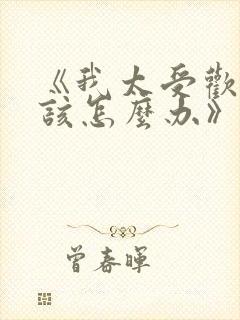 《我太受歡
該怎麼办》
曾春暉